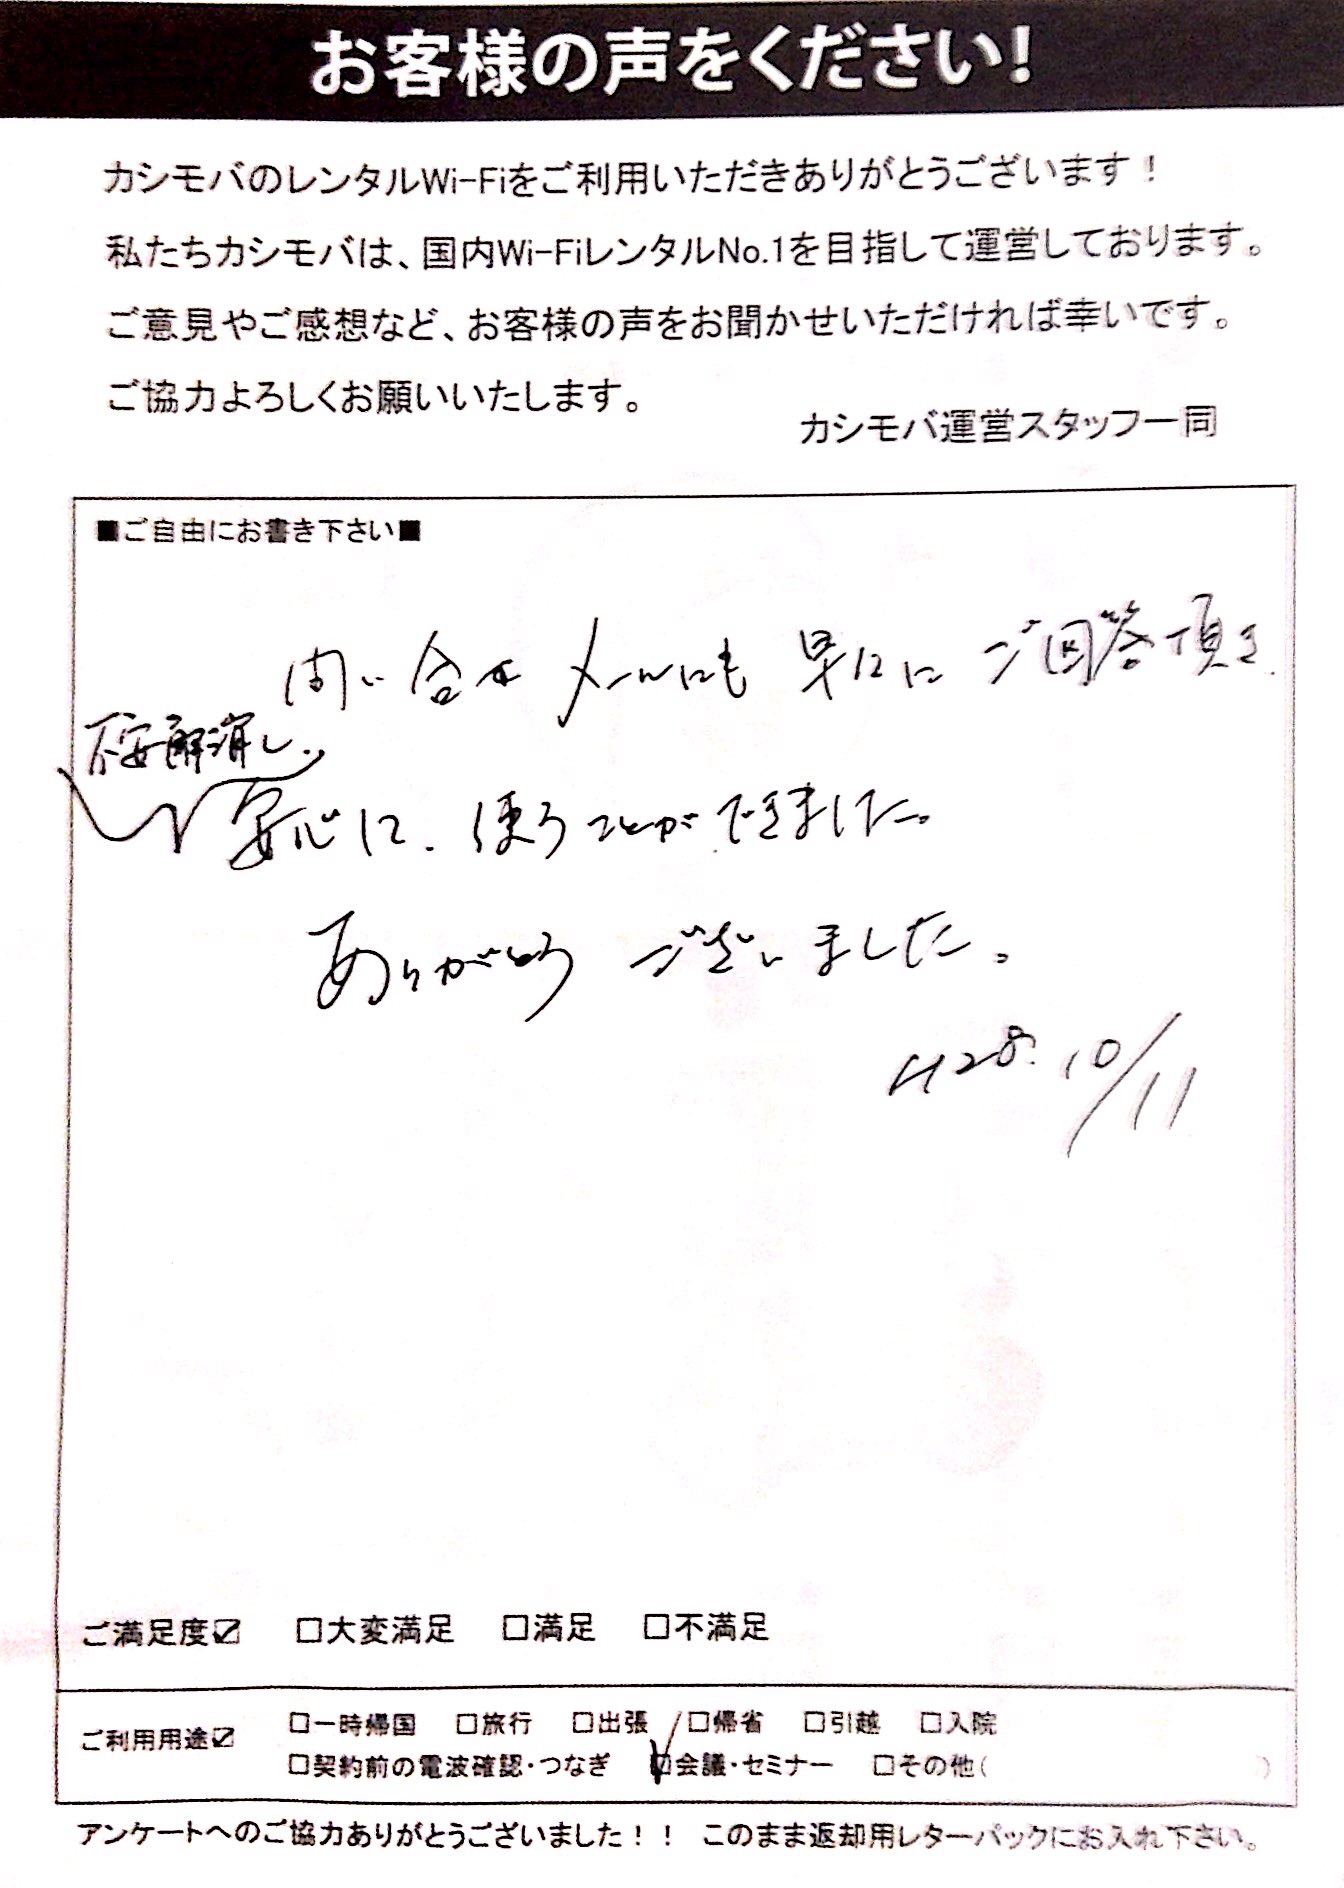 お客様の声をください!
カシモバのレンタルWi-Fiをご利用いただきありがとうございます！
私たちカシモバは、国内Wi-FiレンタルNo.1を目指して運営しております。
ご意見やご感想など、お客様の声をお聞かせいただければ幸いです。
ご協力よろしくお願いいたします。
カシモバ運営スタッフ一同
■ご自由にお書き下さい■
問い合せメールにも 早に ご回答頂き、
不安解消し、
安心に、使うことができました。
ありがとう ございました。
H28.10/11
ご満足度☑ □大変満足 □満足 □不満足
ご利用用途☑ □一時帰国 □旅行 □出張 □帰省 □引越 □入院
□契約前の電波確認・つなぎ ☑会議・セミナー □その他( )
アンケートへのご協力ありがとうございました！！ このまま返却用レターパックにお入れ下さい。